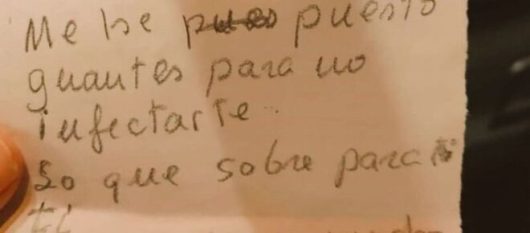 Me he puesto
guantes para no
infectarte.
Lo que sobre para
ti